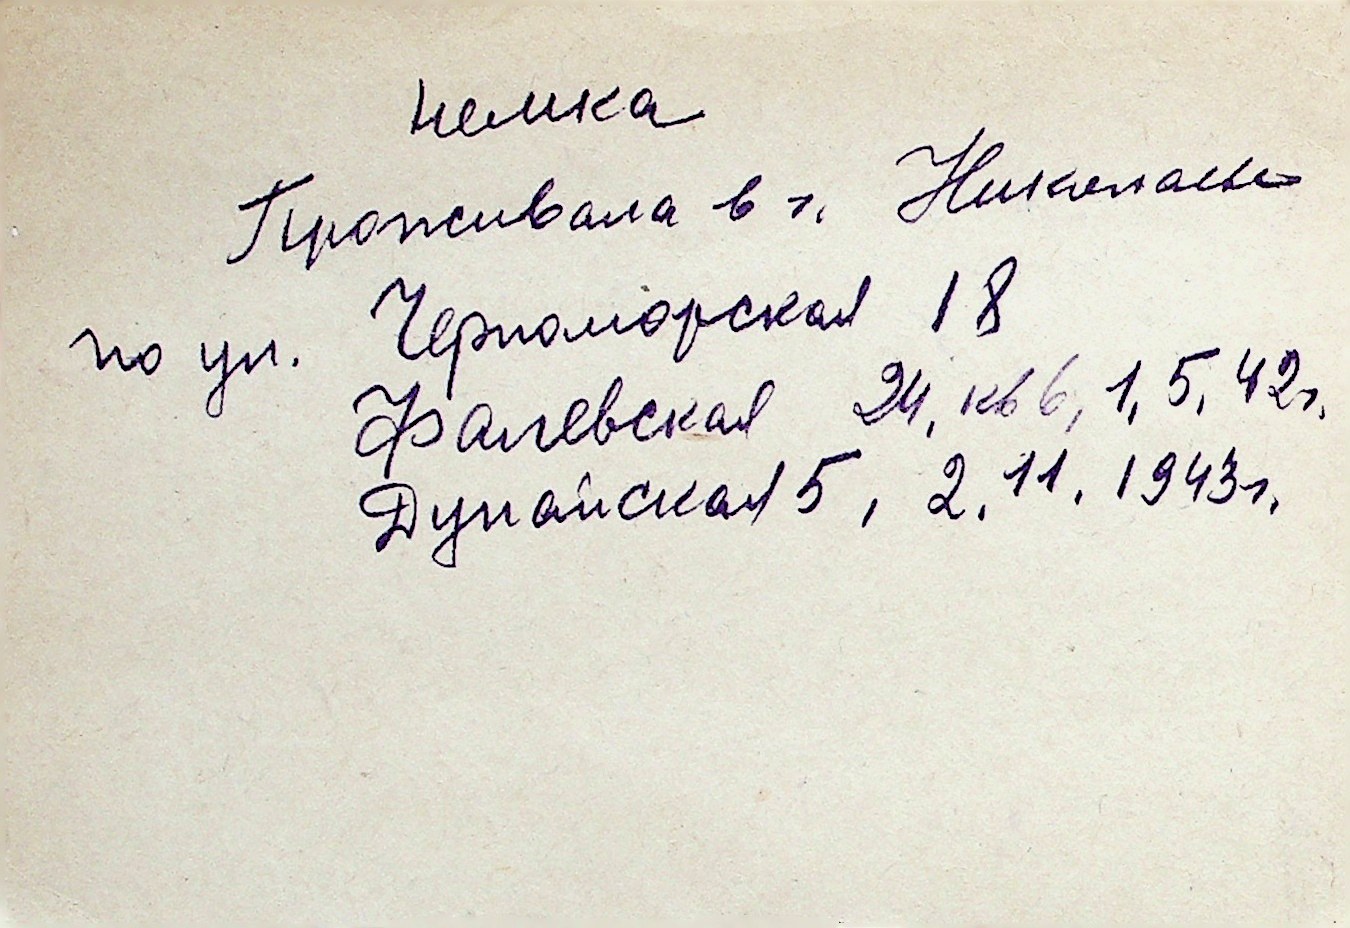 немка
Проживала в г. Николаеве
по ул. Черноморская 18
Фалеевская 24, кв 6, 1,5,42г.
Дунайская 5, 2.11.1943г.